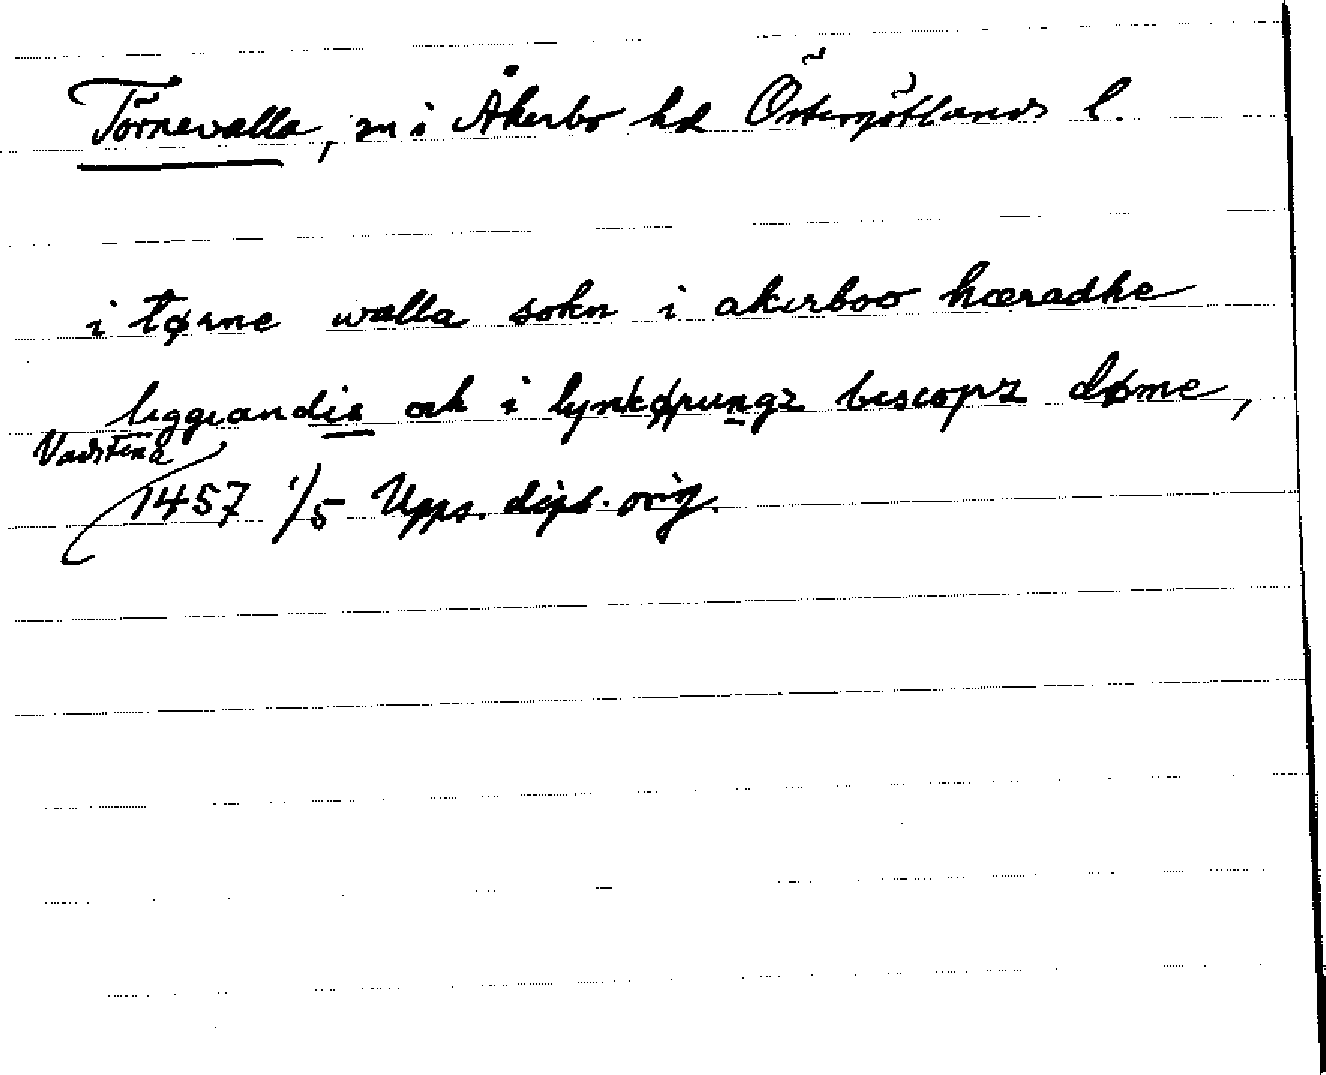 Törnevalla, sn i Åkerbo hd Östergötlands l.
i tørne walla sokn i akerboo hæradhe
liggiandis ok i lynkøpungz bescopz døme,
Vadstena
1457 1/5 Upps. dipl. orig.